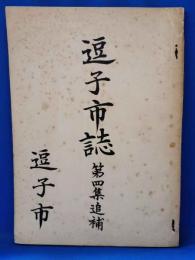 逗子市誌
第四集追補
逗子市